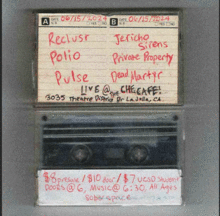 A 06/15/2024 B 06/15/2024
Reclusr Jericho Sirens
Polio Private Property
Pulse Dead Martyr
LIVE @ the CHE CAFE!
3035 Theatre District Dr La Jolla, CA
$8 presale / $10 door / $7 UCSD Student
DOORS @ 6, Music @ 6:30, All Ages
sober space